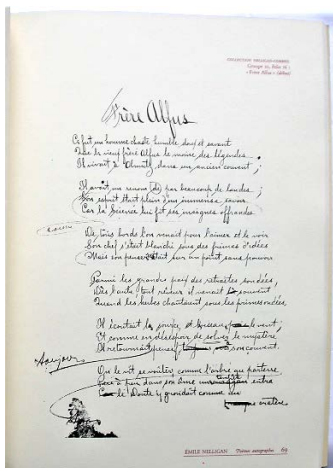 COLLECTION NELLIGAN-CORBEIL
« Frère Alfus » (début)
Frère Alfus
Ce fut un homme chaste humble doux et savant
Que le vieux frère Alfus le moine des légendes
Il vivait à Olmutz dans un ancien couvent ;
Il avait un renom par beaucoup de landes ;
Son esprit était plein d'un immense savoir
Car la Science lui fit ses insignes offrandes.
De tous bords l'on venait pour l'aimer et le voir
Son chef s'était blanchi sous des frimas d'idées
Mais son penser était sur un point sans pouvoir
Parmi les grandes paix des retraites sondées,
Dès l'aube, tout rêveur il venait souvent
Quand les herbes chantaient sous les primes ondées,
Il écoutait la source, et l'oiseau le vent ;
Et comme en désespoir de solver le mystère
Il retournait pensif son couvent.
On le vit se voûter comme l'arbre au parterre
dans son âme entra
le Doute y grondait comme un
cratère
ÉMILE NELLIGAN Poèmes autographes 69